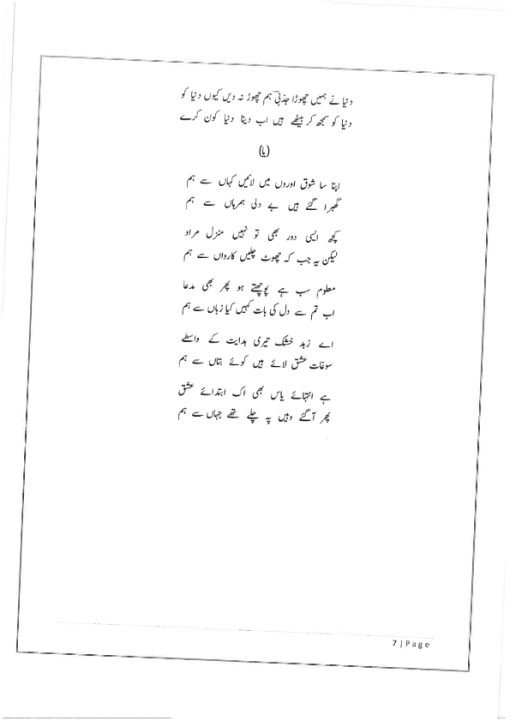 دنیا نے ہمیں چھوڑا جذبیؔ ہم چھوڑ نہ دیں کیوں دنیا کو
دنیا کو سمجھ کر بیٹھے ہیں اب دنیا دنیا کون کرے
(یا)
اپنا سا شوق اوروں میں لائیں کہاں سے ہم
گھبرا گئے ہیں بے دلی ہمرہاں سے ہم
کچھ ایسی دور بھی تو نہیں منزل مراد
لیکن یہ جب کہ چھوٹ چلیں کارواں سے ہم
معلوم سب ہے پوچھتے ہو پھر بھی مدعا
اب تم سے دل کی بات کہیں کیا زباں سے ہم
اے زہد خشک تیری ہدایت کے واسطے
سوغات عشق لائے ہیں کوئے بتاں سے ہم
ہے انتہائے یاس بھی اک ابتدائے عشق
پھر آگئے وہیں پہ چلے تھے جہاں سے ہم
7 | Page